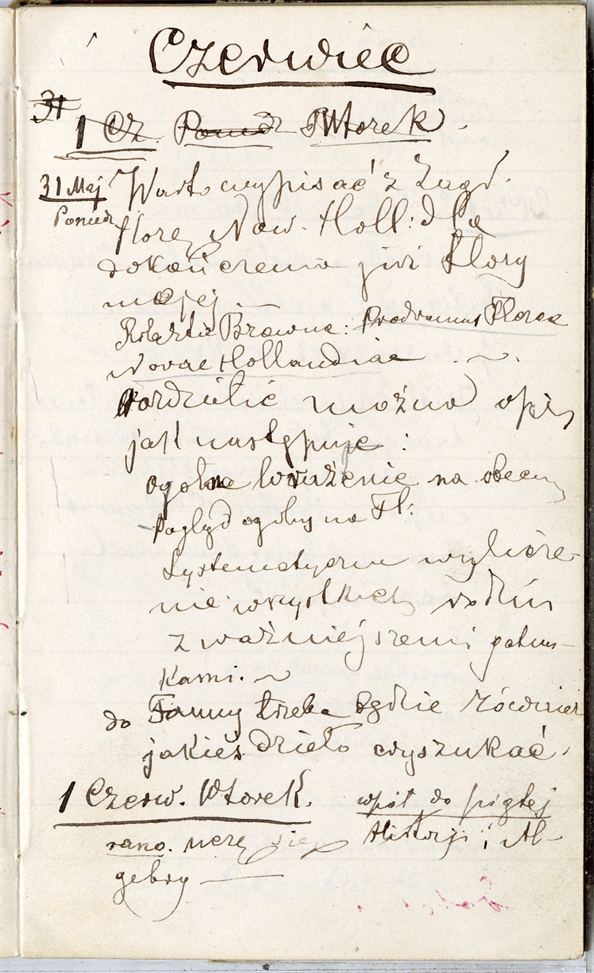 Czerwiec
31
1 Cz. Ponied Wtorek.
31 Maj Warto wypisać z Zagr.
Poniedz florę Now. Holl: dla
dokończenia jui Flory
mojej —
Robarta Browna: Prodromus Florae
Novae Hollandiae
Rozdzielić można opis
jak następuje:
ogólne wrażenie na obecny
pogląd ogólny na Fl:
Systematyczne wylicze-
nie wszystkich rodzin
z ważniejszemi gatun-
kami.
do Fauny trzeba będzie również
jakieś dzieło wyszukać.
1 Czerw. Wtorek. wpół do piątej
rano. uczę się Historji i Al-
gebry —